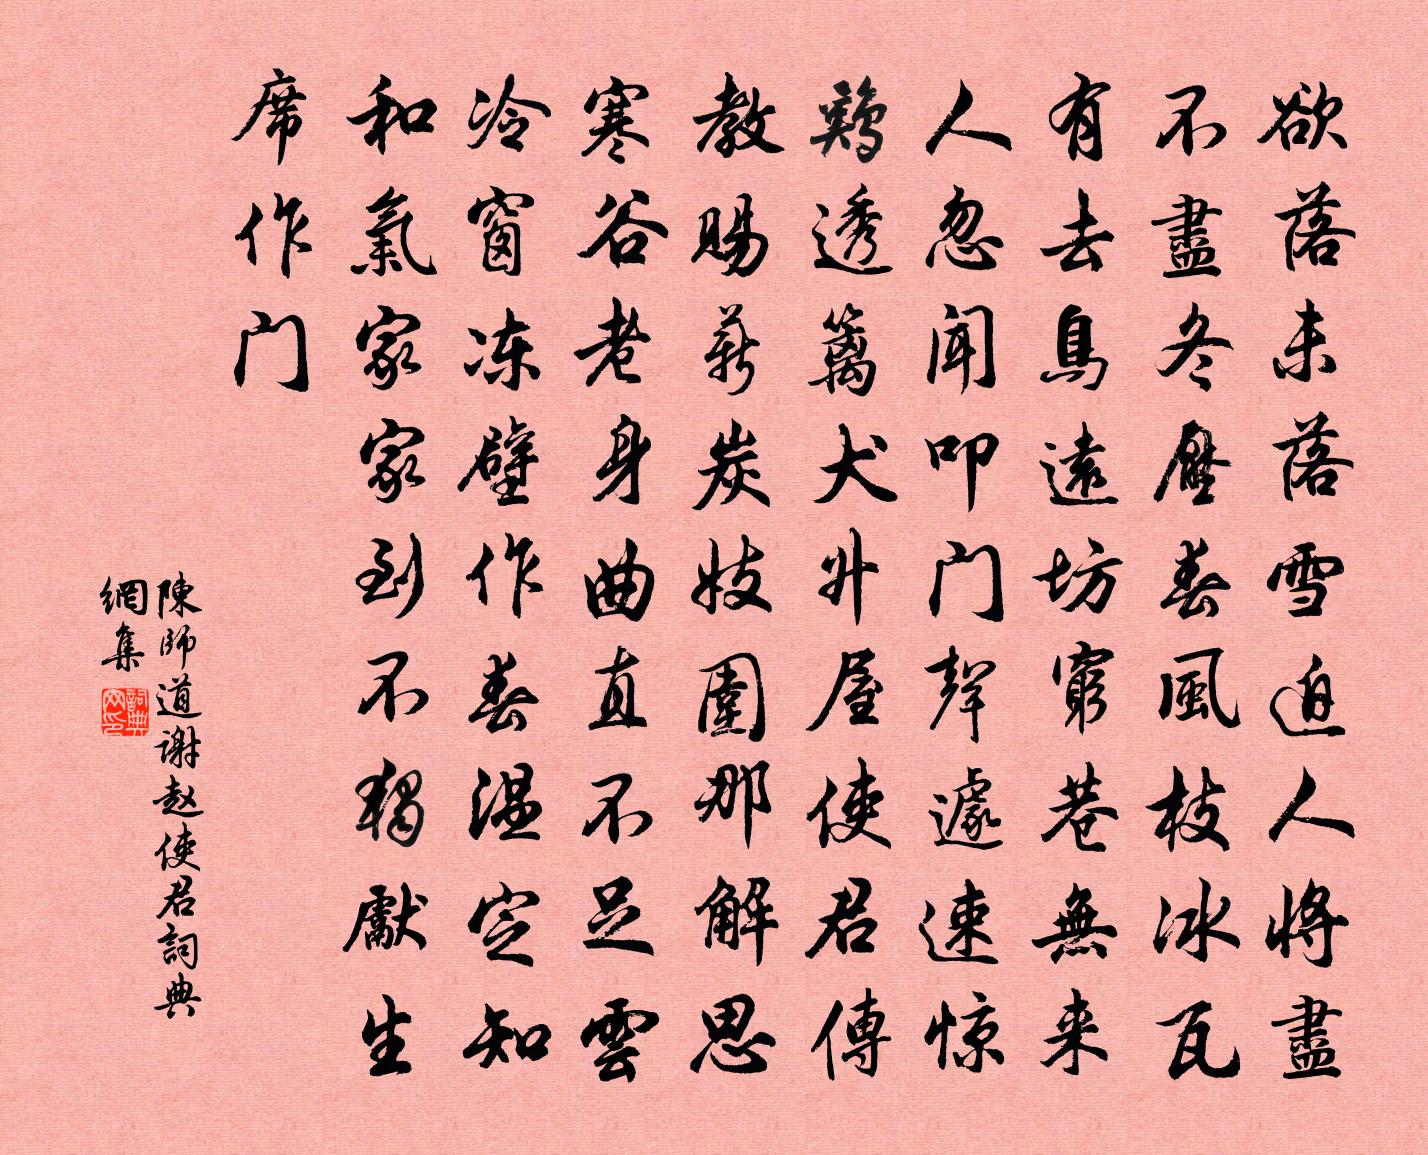 欲落未落雪迫人將盡
不盡冬壓春風枝冰瓦
有去鳥遠坊窮巷無来
人忽聞叩门聲遽速惊
鷄透篱犬升屋使君傳
教賜薪炭妓圍那解思
寒谷老身曲直不足雲
冷窗冻壁作春温定知
和氣家家到不獨獻生
席作门
陳師道謝赵使君詞典
網集
詞典网印